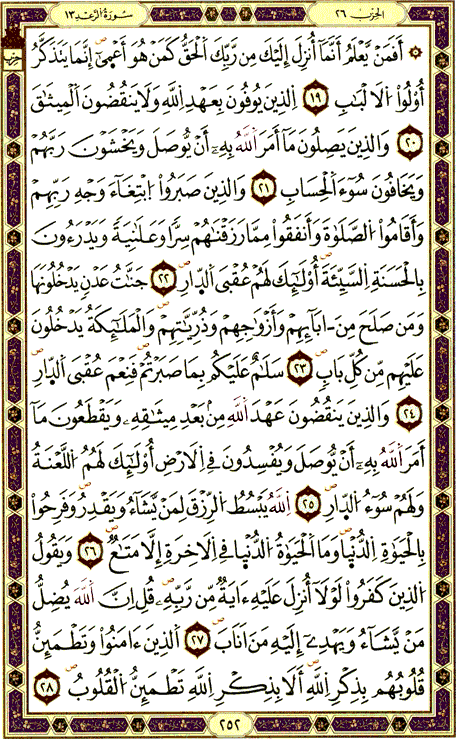 الحزب ٢٦
سُورَةُ الرَّعْدِ ١٣
حزب
۞ أَفَمَنْ يَّعْلَمُ أَنَّمَآ أُنزِلَ إِلَيْكَ مِن رَّبِّكَ اَ۬لْحَقُّ كَمَنْ هُوَ أَعْم۪ىٰٓۖ إِنَّمَا يَتَذَكَّرُ
أُوْلُواْ اُ۬لَالْبَٰبِ ١٩ اِ۬لذِينَ يُوفُونَ بِعَهْدِ اِ۬للَّهِ وَلَا يَنقُضُونَ اَ۬لْمِيثَٰقَ
٢٠ وَالذِينَ يَصِلُونَ مَآ أَمَرَ اَ۬للَّهُ بِهِۦٓ أَنْ يُّوصَلَ وَيَخْشَوْنَ رَبَّهُمْ
وَيَخَافُونَ سُوٓءَ اَ۬لْحِسَابِ ٢١ وَالذِينَ صَبَرُواْ اُ۪بْتِغَآءَ وَجْهِ رَبِّهِمْ
وَأَقَامُواْ اُ۬لصَّلَوٰةَ وَأَنفَقُواْ مِمَّا رَزَقْنَٰهُمْ سِرّاٗ وَعَلَٰنِيَةٗ وَيَدْرَءُونَ
بِالْحَسَنَةِ اِ۬لسَّيِّئَةَۖ أُوْلَٰٓئِكَ لَهُمْ عُقْبَى اَ۬لدّ۪ارِۖ ٢٢ جَنَّٰتُ عَدْنٖ يَدْخُلُونَهَا
وَمَن صَلَحَ مِنَ اٰبَآئِهِمْ وَأَزْوَٰجِهِمْ وَذُرِّيَّٰتِهِمْۖ وَالْمَلَٰٓئِكَةُ يَدْخُلُونَ
عَلَيْهِم مِّن كُلِّ بَابٖۖ ٢٣ سَلَٰمٌ عَلَيْكُم بِمَا صَبَرْتُمْۖ فَنِعْمَ عُقْبَى اَ۬لدّ۪ارِۖ
٢٤ وَالذِينَ يَنقُضُونَ عَهْدَ اَ۬للَّهِ مِنۢ بَعْدِ مِيثَٰقِهِۦ وَيَقْطَعُونَ مَآ
أَمَرَ اَ۬للَّهُ بِهِۦٓ أَنْ يُّوصَلَ وَيُفْسِدُونَ فِے اِ۬لَارْضِ أُوْلَٰٓئِكَ لَهُمُ اُ۬للَّعْنَةُ
وَلَهُمْ سُوٓءُ اُ۬لدّ۪ارِۖ ٢٥ اِ۬للَّهُ يَبْسُطُ اُ۬لرِّزْقَ لِمَنْ يَّشَآءُ وَيَقْدِرُۖ وَفَرِحُواْ
بِالْحَيَوٰةِ اِ۬لدُّنْي۪اۖ وَمَا اَ۬لْحَيَوٰةُ اُ۬لدُّنْي۪ا فِے اِ۬لَاخِرَةِ إِلَّا مَتَٰعٞۖ ٢٦ وَيَقُولُ
اُ۬لذِينَ كَفَرُواْ لَوْلَآ أُنزِلَ عَلَيْهِ ءَايَةٞ مِّن رَّبِّهِۦۖ قُلِ اِنَّ اَ۬للَّهَ يُضِلُّ
مَنْ يَّشَآءُ وَيَهْدِےٓ إِلَيْهِ مَنَ اَنَابَۖ ٢٧ اَ۬لذِينَ ءَامَنُواْ وَتَطْمَئِنُّ
قُلُوبُهُم بِذِكْرِ اِ۬للَّهِۖ أَلَا بِذِكْرِ اِ۬للَّهِ تَطْمَئِنُّ اُ۬لْقُلُوبُۖ ٢٨
٢٥٢